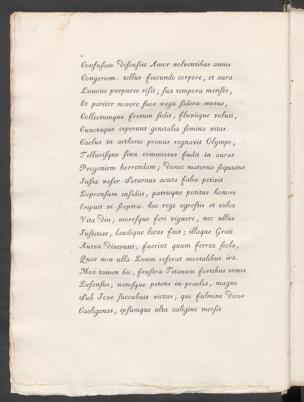 Confusam discussit Amor volventibus annis
Congeriem. tellus foecundo corpore, et aura
Lumine purpureo risit; sua tempora menses,
Et pariter novere suos vaga sidera motus,
Collectumque fretum sedit, fluviique voluti,
Cunctaque ceperunt genitalia semina vitas.
Caelus in aetherio primus regnavit Olympo,
Tellurisque sinu commixtus fudit in auras
Progeniem horrendam; donec materna sequutus
Jussa vafer Saturnus acuta falce petivit
Deprensum insidiis, patrioque potitus honore
Eripuit vi sceptra. hoc rege agrestis et exlex
Vita diu, moresque feri viguere, nec ullus
Justitiae, laudique locus fuit; illaque Graii
Aurea dixerunt, fuerint quum ferrea secla,
Quae non ulla Deum referat mortalibus ira.
Mox tamen hic, frustra Titanum fortibus armis
Defensus, natosque petens in praelia, magno
Sub Jove succubuit victus, qui fulmine diros
Caeligenas, ipsumque alta caligine mersit